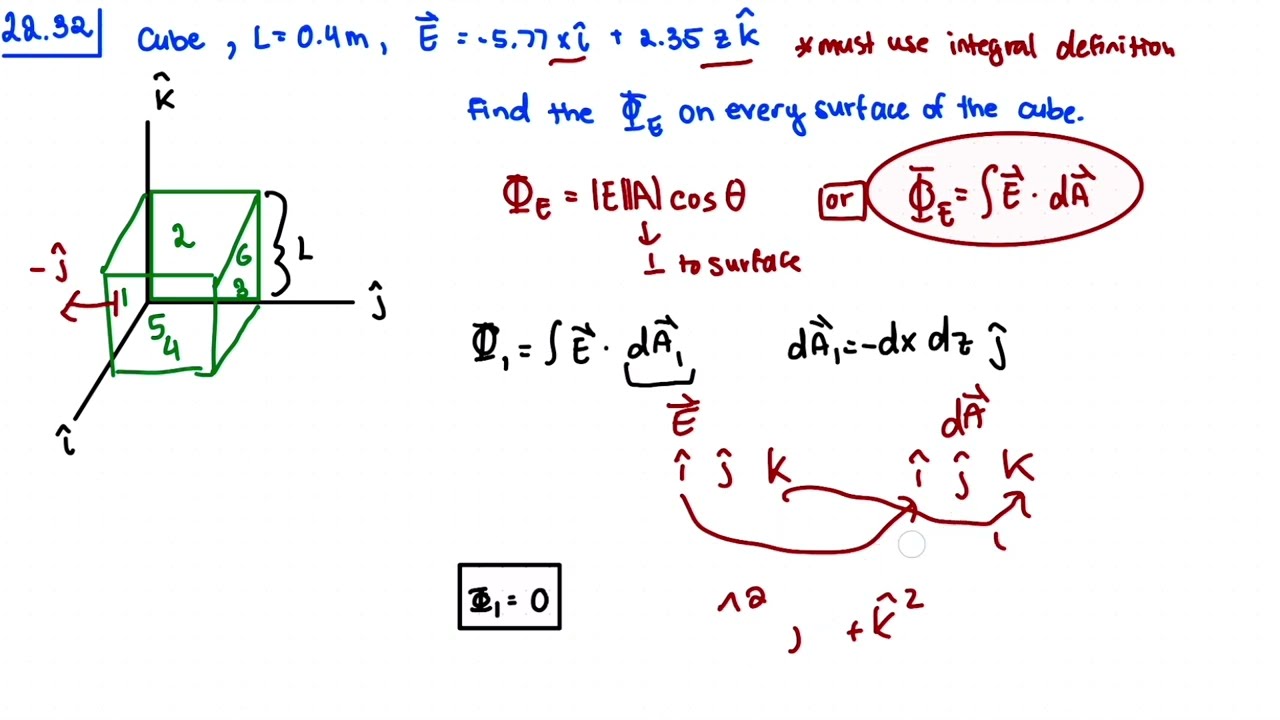 22.32 Cube, L = 0.4 m, E⃗ = -5.77 x î + 2.35 z k̂ *must use integral definition
Find the Φ_E on every surface of the cube.
Φ_E = |E||A| cos θ or Φ_E = ∫ E⃗ · dA⃗
↓
⊥ to surface
k̂
2
6
L
-ĵ
1
3
ĵ
5
4
î
Φ₁ = ∫ E⃗ · dA⃗₁ dA⃗₁ = -dx dz ĵ
E⃗ dA⃗
î ĵ k î ĵ k
Φ₁ = 0
^2 , + k̂²